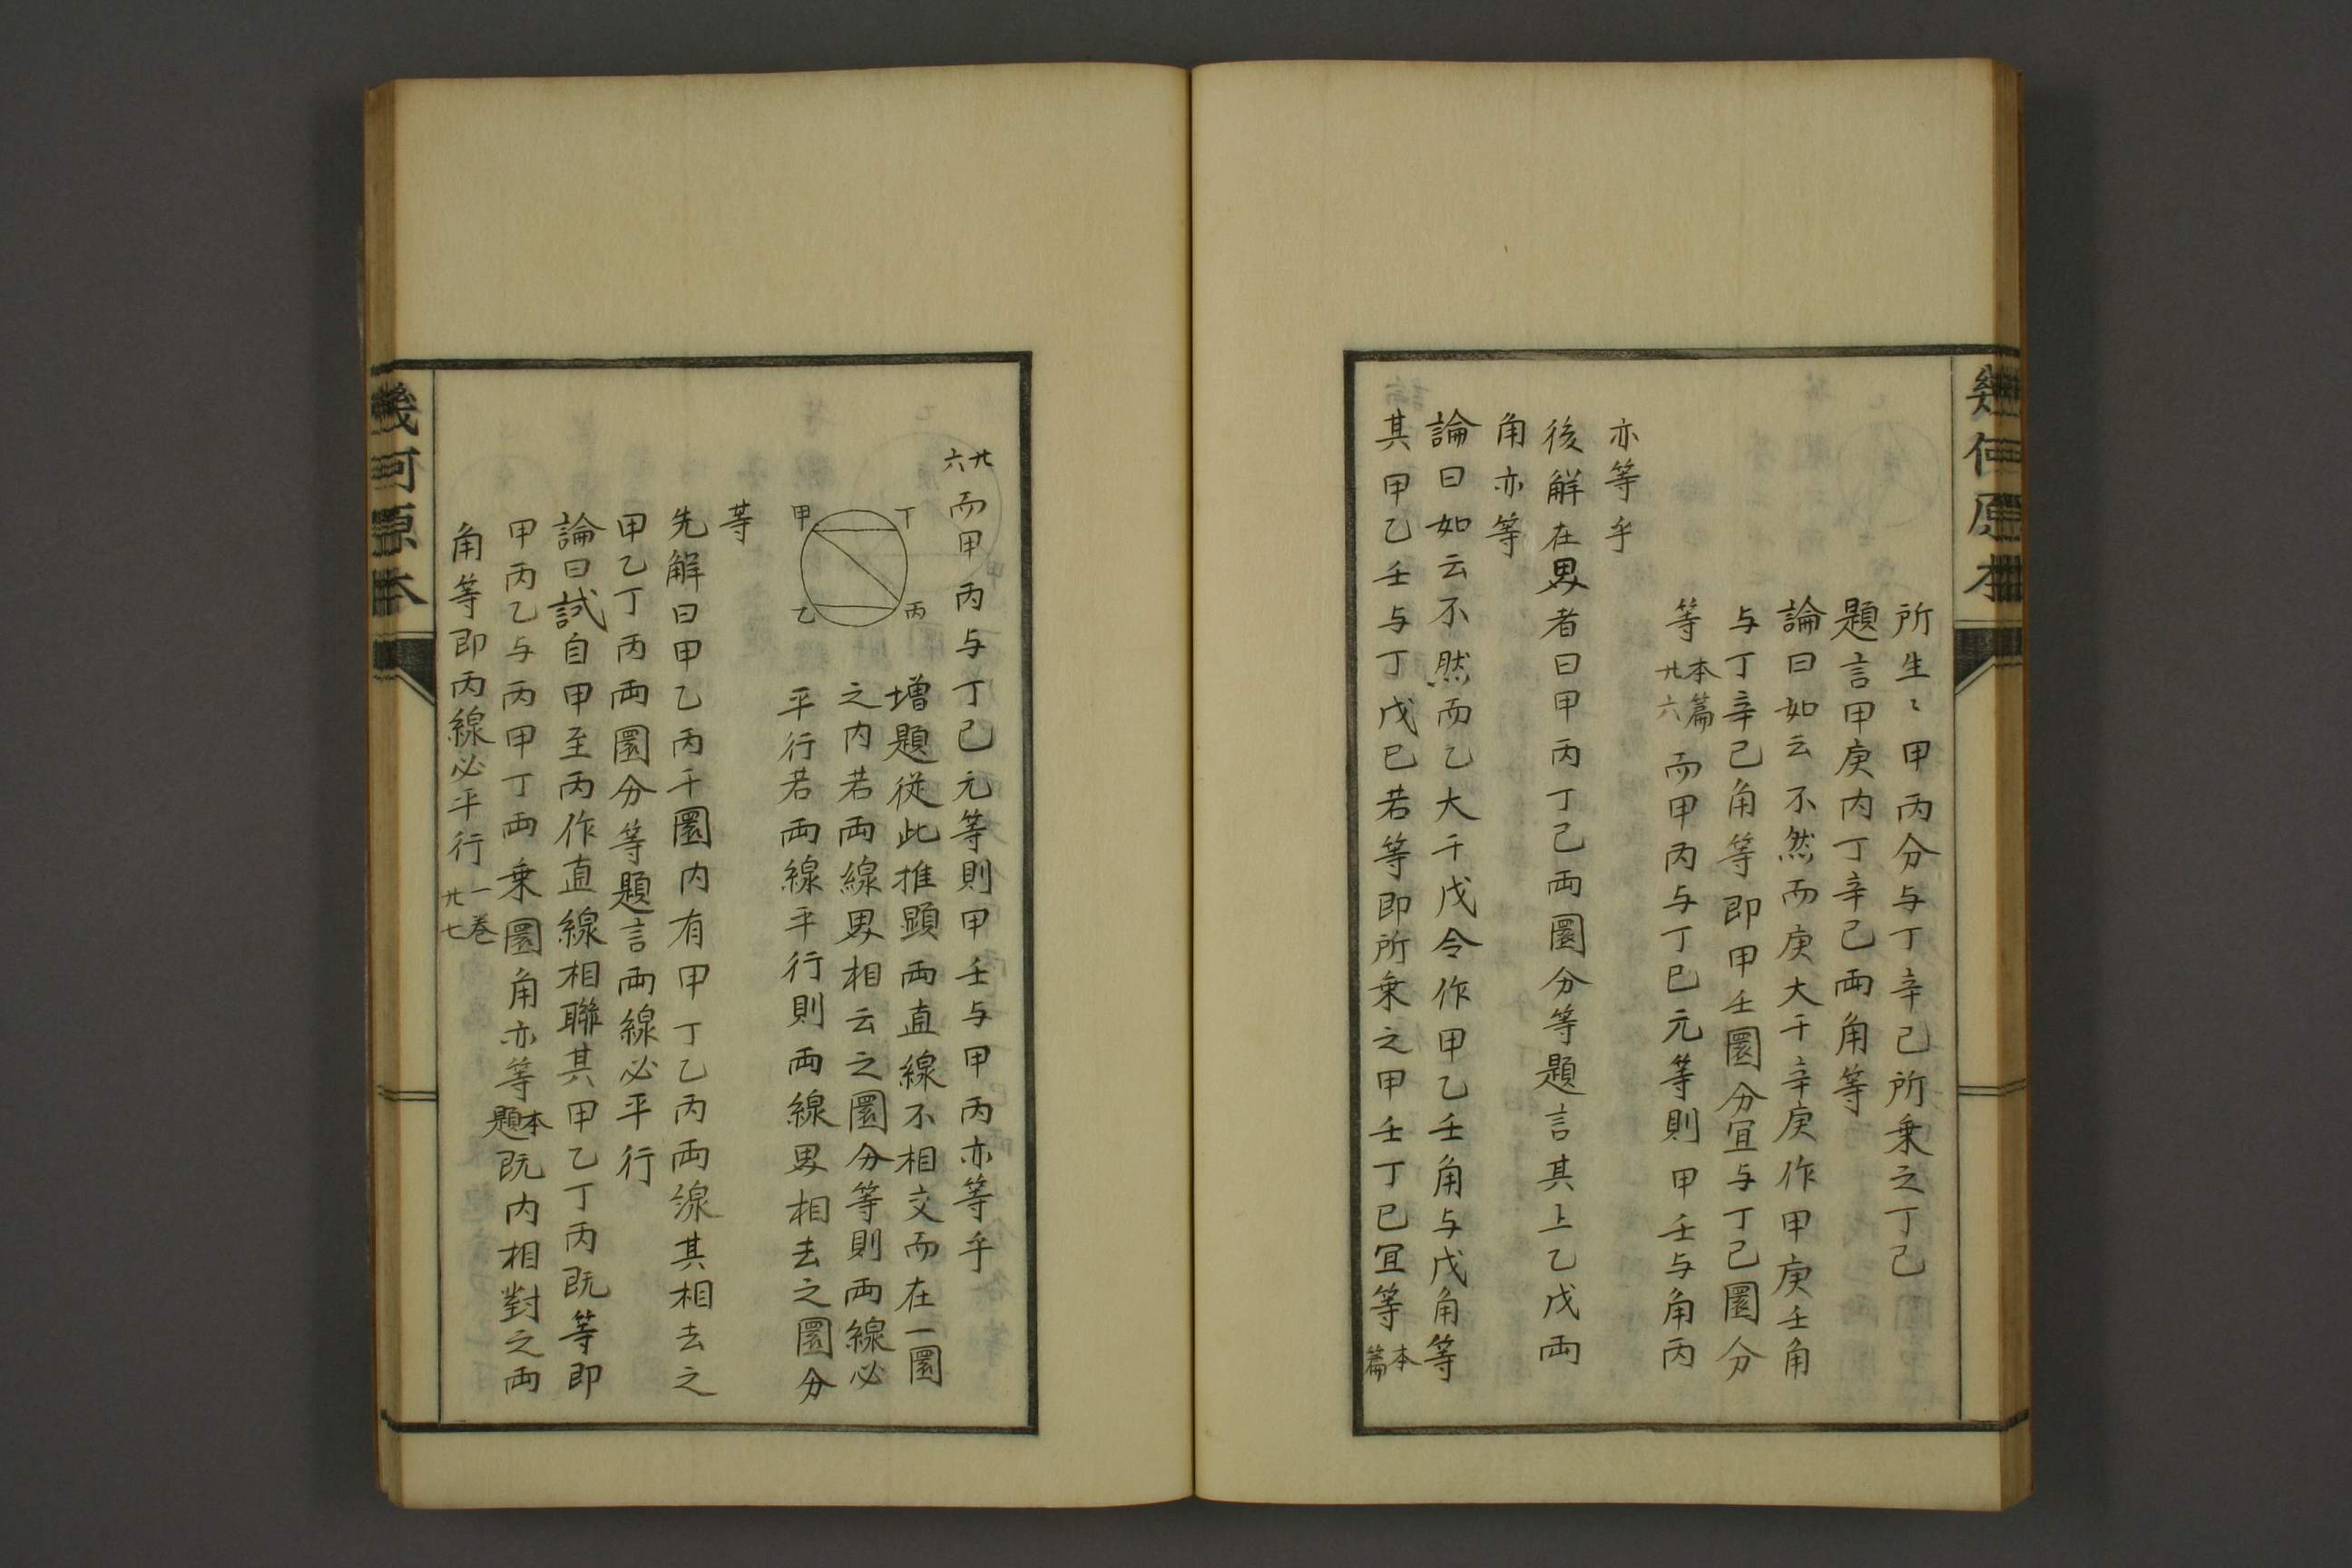 幾何原本
所生〻甲丙分与丁辛己所乗之丁己
題言甲庚内丁辛己両角等
論曰如云不然而庚大于辛庚作甲庚壬角
与丁辛己角等即甲壬圜分冝与丁己圜分
等本篇廿六而甲丙与丁巳元等則甲壬与角丙
亦等乎
後解在男者曰甲丙丁己両圜分等題言其上乙戊両
角亦等
論曰如云不然而乙大于戊令作甲乙壬角与戊角等
其甲乙壬与丁戊巳若等即所乗之甲壬丁巳冝等本篇
廿六而甲丙与丁己元等則甲壬与甲丙亦等乎
丁
甲
丙
乙
増題従此推顕両直線不相交而在一圜
之内若両線男相云之圜分等則両線必
平行若両線平行則両線男相去之圜分
等
先解曰甲乙丙于圜内有甲丁乙丙両線其相去之
甲乙丁丙両圜分等題言両線必平行
論曰試自甲至丙作直線相聯其甲乙丁丙既等即
甲丙乙与丙甲丁両乗圜角亦等本題既内相對之両
角等即丙線必平行一巻廿七
幾何原本